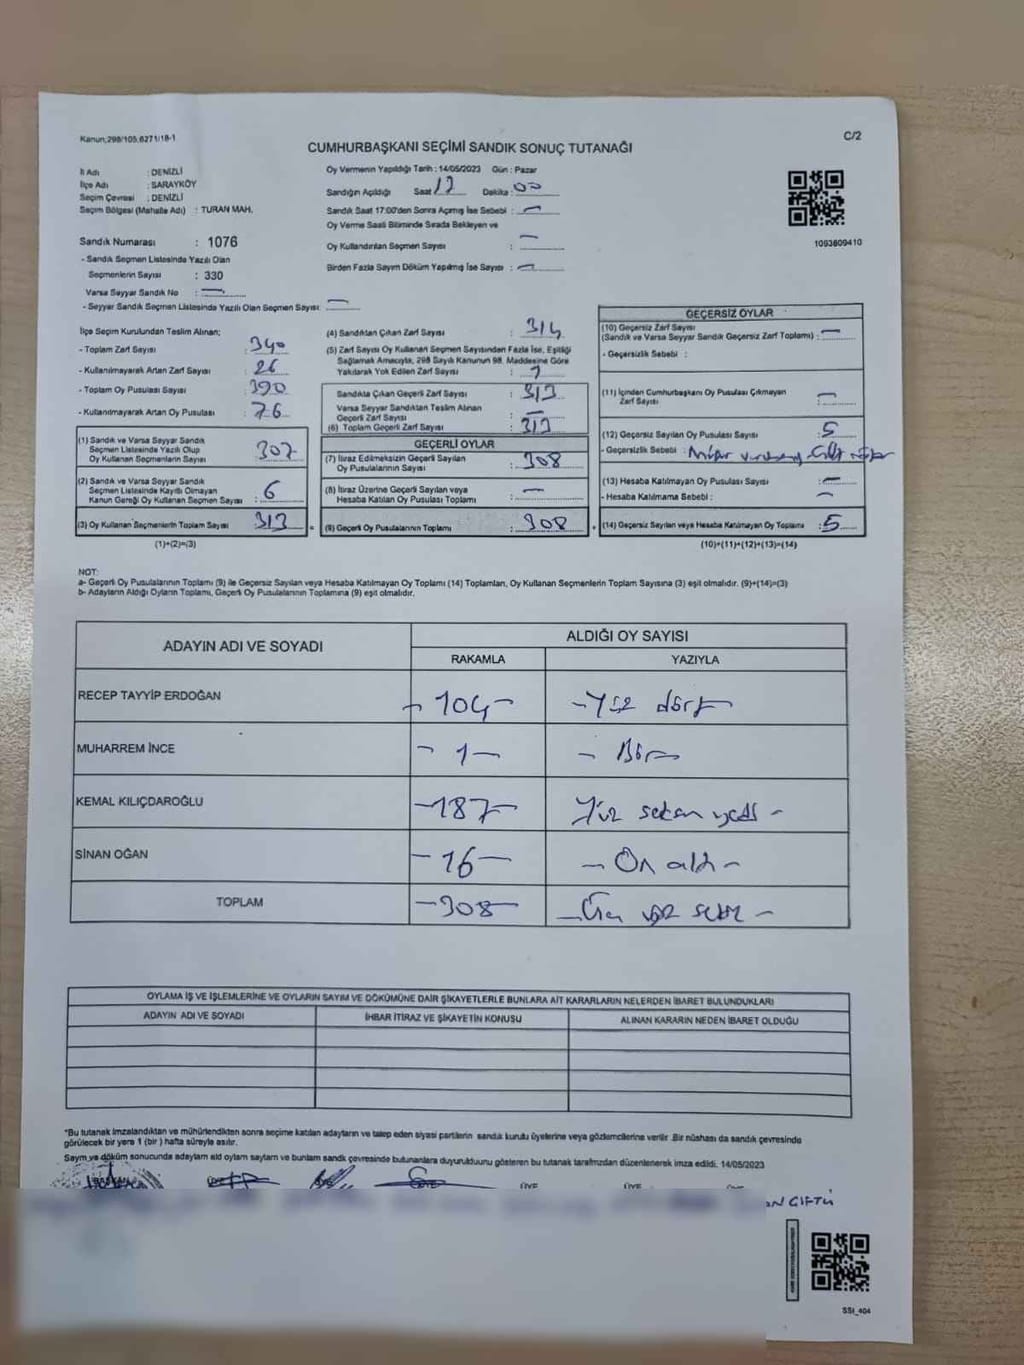 Kanun:298/105,6271/18-1
C/2
CUMHURBAŞKANI SEÇİMİ SANDIK SONUÇ TUTANAĞI
İl Adı : DENİZLİ
İlçe Adı : SARAYKÖY
Seçim Çevresi : DENİZLİ
Seçim Bölgesi (Mahalle Adı) : TURAN MAH.
Sandık Numarası : 1076
- Sandık Seçmen Listesinde Yazılı Olan
Seçmenlerin Sayısı : 330
Varsa Seyyar Sandık No : —
- Seyyar Sandık Seçmen Listesinde Yazılı Olan Seçmen Sayısı: —
Oy Vermenin Yapıldığı Tarih : 14/05/2023 Gün : Pazar
Sandığın Açıldığı Saat 17 Dakika : 00
Sandık Saat 17:00'den Sonra Açılmış İse Sebebi : —
Oy Verme Saati Bitiminde Sırada Bekleyen ve
Oy Kullandırılan Seçmen Sayısı : —
Birden Fazla Sayım Döküm Yapılmış İse Sayısı : —
1093809410
İlçe Seçim Kurulundan Teslim Alınan;
- Toplam Zarf Sayısı : 340
- Kullanılmayarak Artan Zarf Sayısı : 26
- Toplam Oy Pusulası Sayısı : 390
- Kullanılmayarak Artan Oy Pusulası : 76
(1) Sandık ve Varsa Seyyar Sandık
Seçmen Listesinde Yazılı Olup
Oy Kullanan Seçmenlerin Sayısı : 307
(2) Sandık ve Varsa Seyyar Sandık
Seçmen Listesinde Kayıtlı Olmayan
Kanun Gereği Oy Kullanan Seçmen Sayısı : 6
(3) Oy Kullanan Seçmenlerin Toplam Sayısı : 313
(1)+(2)=(3)
(4) Sandıktan Çıkan Zarf Sayısı : 314
(5) Zarf Sayısı Oy Kullanan Seçmen Sayısından Fazla İse, Eşitliği
Sağlamak Amacıyla, 298 Sayılı Kanunun 98. Maddesine Göre
Yakılarak Yok Edilen Zarf Sayısı : 1
Sandıkta Çıkan Geçerli Zarf Sayısı : 313
Varsa Seyyar Sandıktan Teslim Alınan
Geçerli Zarf Sayısı : —
(6) Toplam Geçerli Zarf Sayısı : 313
GEÇERLİ OYLAR
(7) İtiraz Edilmeksizin Geçerli Sayılan
Oy Pusulalarının Sayısı : 308
(8) İtiraz Üzerine Geçerli Sayılan veya
Hesaba Katılan Oy Pusulası Toplamı : —
= (9) Geçerli Oy Pusulalarının Toplamı : 308
GEÇERSİZ OYLAR
(10) Geçersiz Zarf Sayısı
(Sandık ve Varsa Seyyar Sandık Geçersiz Zarf Toplamı) : —
- Geçersizlik Sebebi :
(11) İçinden Cumhurbaşkanı Oy Pusulası Çıkmayan
Zarf Sayısı : —
(12) Geçersiz Sayılan Oy Pusulası Sayısı : 5
- Geçersizlik Sebebi :
(13) Hesaba Katılmayan Oy Pusulası Sayısı : —
- Hesaba Katılmama Sebebi : —
+ (14) Geçersiz Sayılan veya Hesaba Katılmayan Oy Toplamı : 5
(10)+(11)+(12)+(13)=(14)
NOT:
a- Geçerli Oy Pusulalarının Toplamı (9) ile Geçersiz Sayılan veya Hesaba Katılmayan Oy Toplamı (14) Toplamları, Oy Kullanan Seçmenlerin Toplam Sayısına (3) eşit olmalıdır. (9)+(14)=(3)
b- Adayların Aldığı Oyların Toplamı, Geçerli Oy Pusulalarının Toplamına (9) eşit olmalıdır.
ADAYIN ADI VE SOYADI
ALDIĞI OY SAYISI
RAKAMLA YAZIYLA
RECEP TAYYİP ERDOĞAN -104- -Yüz dört-
MUHARREM İNCE -1- -Bir-
KEMAL KILIÇDAROĞLU -187- Yüz seksen yedi-
SİNAN OĞAN -16- -On altı-
TOPLAM -308- -Üç yüz sekiz-
OYLAMA İŞ VE İŞLEMLERİNE VE OYLARIN SAYIM VE DÖKÜMÜNE DAİR ŞİKAYETLERLE BUNLARA AİT KARARLARIN NELERDEN İBARET BULUNDUKLARI
ADAYIN ADI VE SOYADI İHBAR İTİRAZ VE ŞİKAYETİN KONUSU ALINAN KARARIN NEDEN İBARET OLDUĞU
*Bu tutanak imzalandıktan ve mühürlendikten sonra seçime katılan adayların ve talep eden siyasi partilerin sandık kurulu üyelerine veya gözlemcilerine verilir. Bir nüshası da sandık çevresinde
görülecek bir yere 1 (bir) hafta süreyle asılır.
Sayım ve döküm sonucunda adayların ald oyların sayıların ve bunların sandık çevresinde bulunanlara duyurulduunu gösteren bu tutanak tarafmızdan düzenlenerek imza edildi. 14/05/2023
BAŞKAN ÜYE ÜYE ÜYE
ÇİFTÇİ
SSt_404